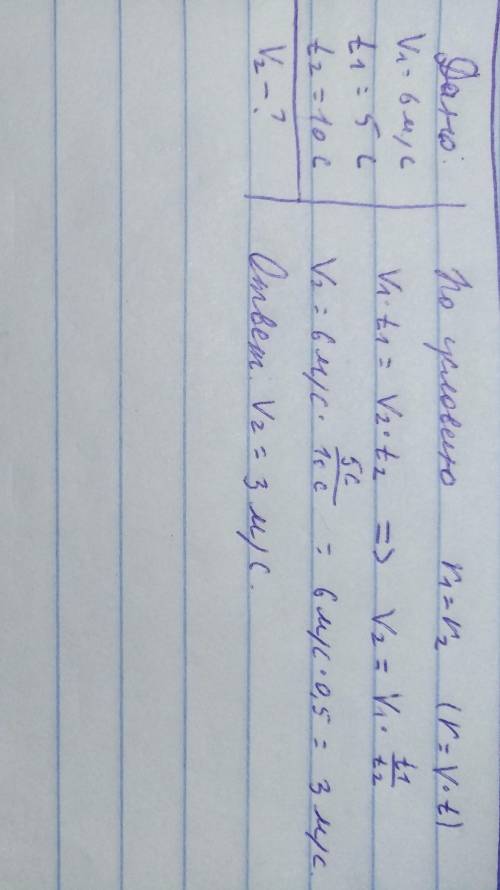 Дано:
V1 = 6 м/с
t1 = 5 с
t2 = 10 с
V2 - ?
По условию r1 = r2 (r = V·t)
V1·t1 = V2·t2 => V2 = V1·t1/t2
V2 = 6 м/с · 5с/10с = 6 м/с · 0,5 = 3 м/с.
Ответ: V2 = 3 м/с.